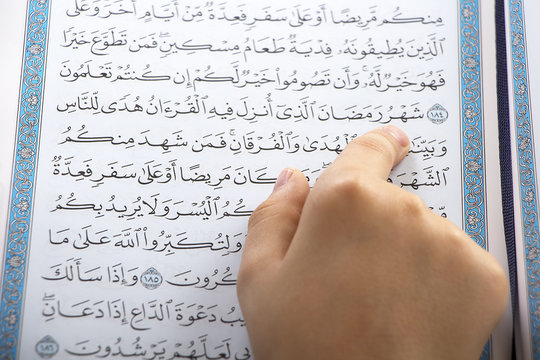 مِنكُم مَّرِيضًا أَوْ عَلَىٰ سَفَرٍ فَعِدَّةٌ مِّنْ أَيَّامٍ أُخَرَ وَعَلَى
الَّذِينَ يُطِيقُونَهُ فِدْيَةٌ طَعَامُ مِسْكِينٍ فَمَن تَطَوَّعَ خَيْرًا
فَهُوَ خَيْرٌ لَّهُ وَأَن تَصُومُوا خَيْرٌ لَّكُمْ إِن كُنتُمْ تَعْلَمُونَ
١٨٤ شَهْرُ رَمَضَانَ الَّذِي أُنزِلَ فِيهِ الْقُرْءَانُ هُدًى لِّلنَّاسِ
وَبَيِّنَٰ الْهُدَىٰ وَالْفُرْقَانِ فَمَن شَهِدَ مِنكُمُ
الشَّهْرَ كَانَ مَرِيضًا أَوْ عَلَىٰ سَفَرٍ فَعِدَّةٌ
كُمُ الْيُسْرَ وَلَا يُرِيدُ بِكُمُ
وَلِتُكَبِّرُوا اللَّهَ عَلَىٰ مَا
كُرُونَ ١٨٥ وَإِذَا سَأَلَكَ
يبُ دَعْوَةَ الدَّاعِ إِذَا دَعَانِ
بِي لَعَلَّهُمْ يَرْشُدُونَ ١٨٦